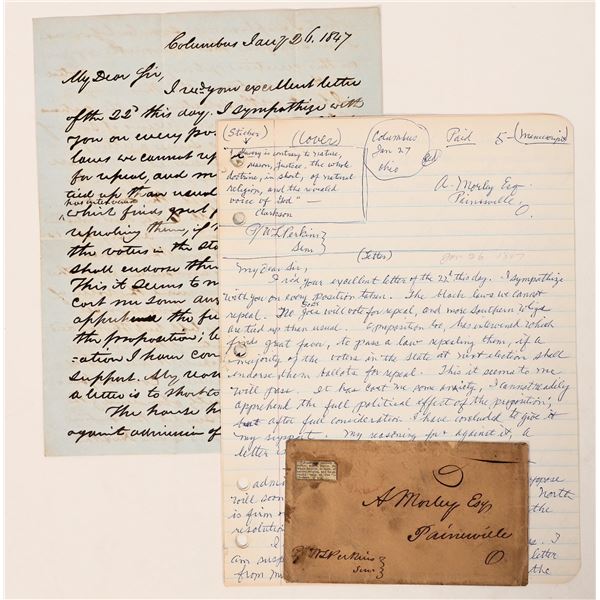 Columbus Jany 26, 1847
My Dear Sir,
I recd your excellent letter
of the 22d this day. I sympathize with
you on every pos
laws we cannot rep
for repeal, and m
tied up than usual
has intervened
which finds great f
repealing them, if
the voters in the sta
shall endorse the
This it seems to m
cost me som anx
apprehend the fu
the proposition; b
ation I have con
support. My
a letter is to short to
The house h
against admission of
(Sticker)
(Cover)
Columbus
Jan 27
Ohio
Red
Paid
5
(manuscript)
Slavery is contrary to nature,
reason, justice, the whole
doctrine, in short, of natural
religion, and the revealed
voice of God" —
Clarkson
A. Morley Esq
Painsville
O.
WLPerkins
Sim
(Letter)
Jan 26 1847
My Dear Sir,
I recd your excellent letter of the 22d this day. I sympathize
with you on every position taken. The black laws we cannot
repeal. No will vote for repeal, and more Southern Whigs
are tied up then usual. A proposition has intervened which
finds great favor, to pass a law repealing them, if a
majority of the voters in the State at next election shall
endorse them ballots for repeal. This it seems to me
will pass. It has cost me some anxiety, I cannot readily
apprehend the full political effect of the proposition;
but after full consideration I have concluded to give it
my support. My reasoning for against it, a
letter
admi
oppose
will soon
North
is firm
the
resolution
I
I
am susp
letter
from m
the
A Morley Esq
Paineville
O.
WLPerkins
Sim